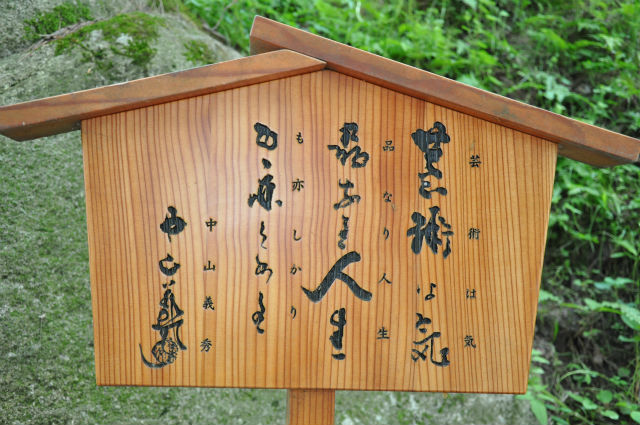 芸術は気
芸術は気
品なり人生
品なり人生
も亦しかり
も亦しかり
中山義秀
中山義秀